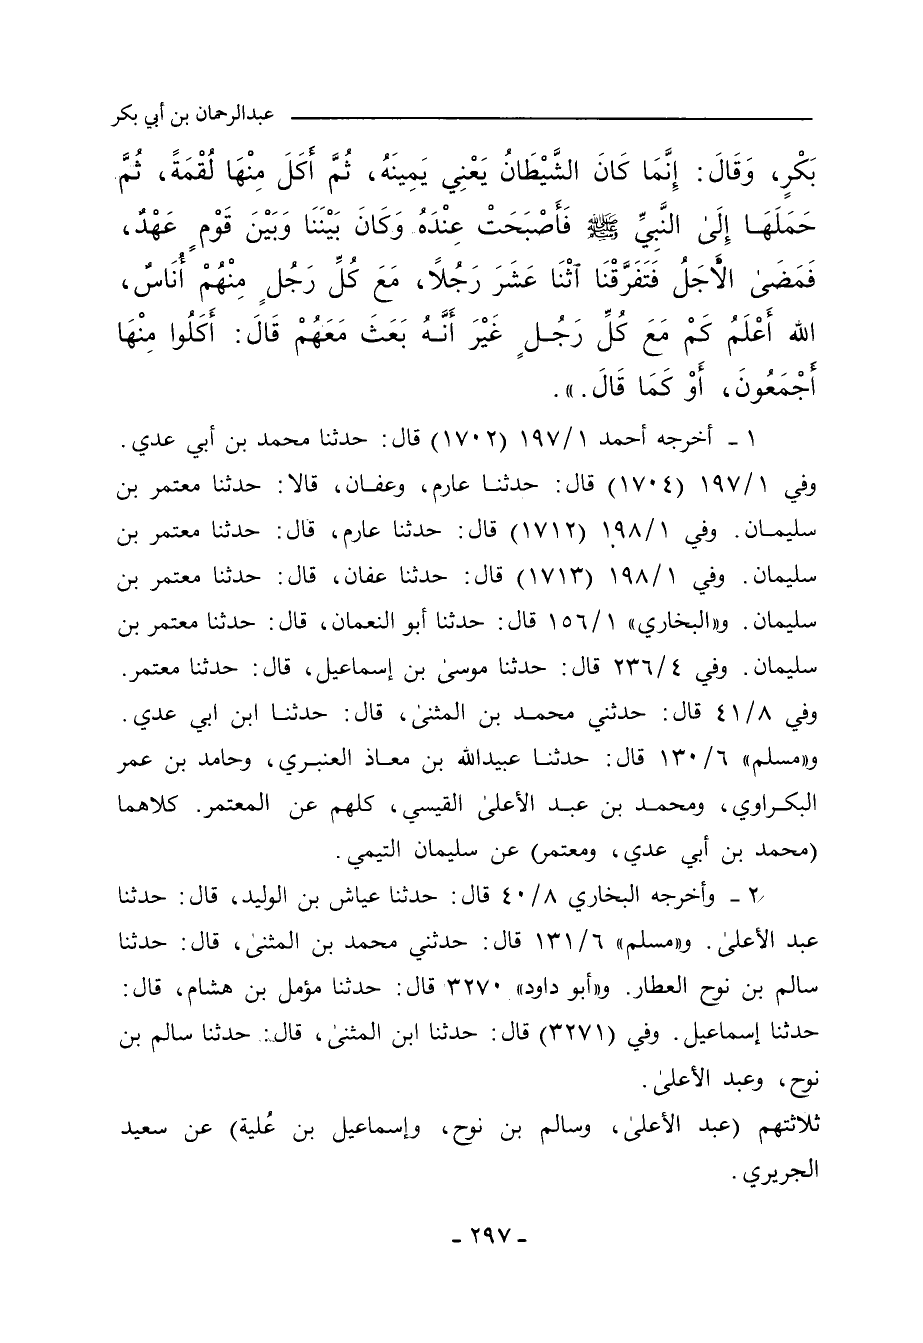 عبدالرحمان بن أبي بكر
بَكْرٍ، وَقَالَ: إِنَّمَا كَانَ الشَّيْطَانُ يَعْنِي يَمِينَهُ، ثُمَّ أَكَلَ مِنْهَا لُقْمَةً، ثُمَّ
حَمَلَهَا إِلَىٰ النَّبِيِّ ﷺ فَأَصْبَحَتْ عِنْدَهُ وَكَانَ بَيْنَنَا وَبَيْنَ قَوْمٍ عَهْدٌ،
فَمَضَىٰ الأَجَلُ فَتَفَرَّقْنَا آثْنَا عَشَرَ رَجُلًا، مَعَ كُلِّ رَجُلٍ مِنْهُمْ أُنَاسٌ،
الله أَعْلَمُ كَمْ مَعَ كُلِّ رَجُلٍ غَيْرَ أَنَّهُ بَعَثَ مَعَهُمْ قَالَ: أَكَلُوا مِنْهَا
أَجْمَعُونَ، أَوْ كَمَا قَالَ.».
١ - أخرجه أحمد ١٩٧/١ (١٧٠٢) قال: حدثنا محمد بن أبي عدي.
وفي ١٩٧/١ (١٧٠٤) قال: حدثنا عارم، وعفان، قالا: حدثنا معتمر بن
سليمان. وفي ١٩٨/١ (١٧١٢) قال: حدثنا عارم، قال: حدثنا معتمر بن
سليمان. وفي ١٩٨/١ (١٧١٣) قال: حدثنا عفان، قال: حدثنا معتمر بن
سليمان. و«البخاري» ١٥٦/١ قال: حدثنا أبو النعمان، قال: حدثنا معتمر بن
سليمان. وفي ٢٣٦/٤ قال: حدثنا موسىٰ بن إسماعيل، قال: حدثنا معتمر.
وفي ٤١/٨ قال: حدثني محمد بن المثنىٰ، قال: حدثنا ابن ابي عدي.
و«مسلم» ١٣٠/٦ قال: حدثنا عبيدالله بن معاذ العنبري، وحامد بن عمر
البكراوي، ومحمد بن عبد الأعلىٰ القيسي، كلهم عن المعتمر. كلاهما
(محمد بن أبي عدي، ومعتمر) عن سليمان التيمي.
٢ - وأخرجه البخاري ٤٠/٨ قال: حدثنا عياش بن الوليد، قال: حدثنا
عبد الأعلىٰ. و«مسلم» ١٣١/٦ قال: حدثني محمد بن المثنىٰ، قال: حدثنا
سالم بن نوح العطار. و«أبو داود» ٣٢٧٠ قال: حدثنا مؤمل بن هشام، قال:
حدثنا إسماعيل. وفي (٣٢٧١) قال: حدثنا ابن المثنىٰ، قال: حدثنا سالم بن
نوح، وعبد الأعلىٰ.
ثلاثتهم (عبد الأعلىٰ، وسالم بن نوح، وإسماعيل بن عُلية) عن سعيد
الجريري.
- ٢٩٧ -